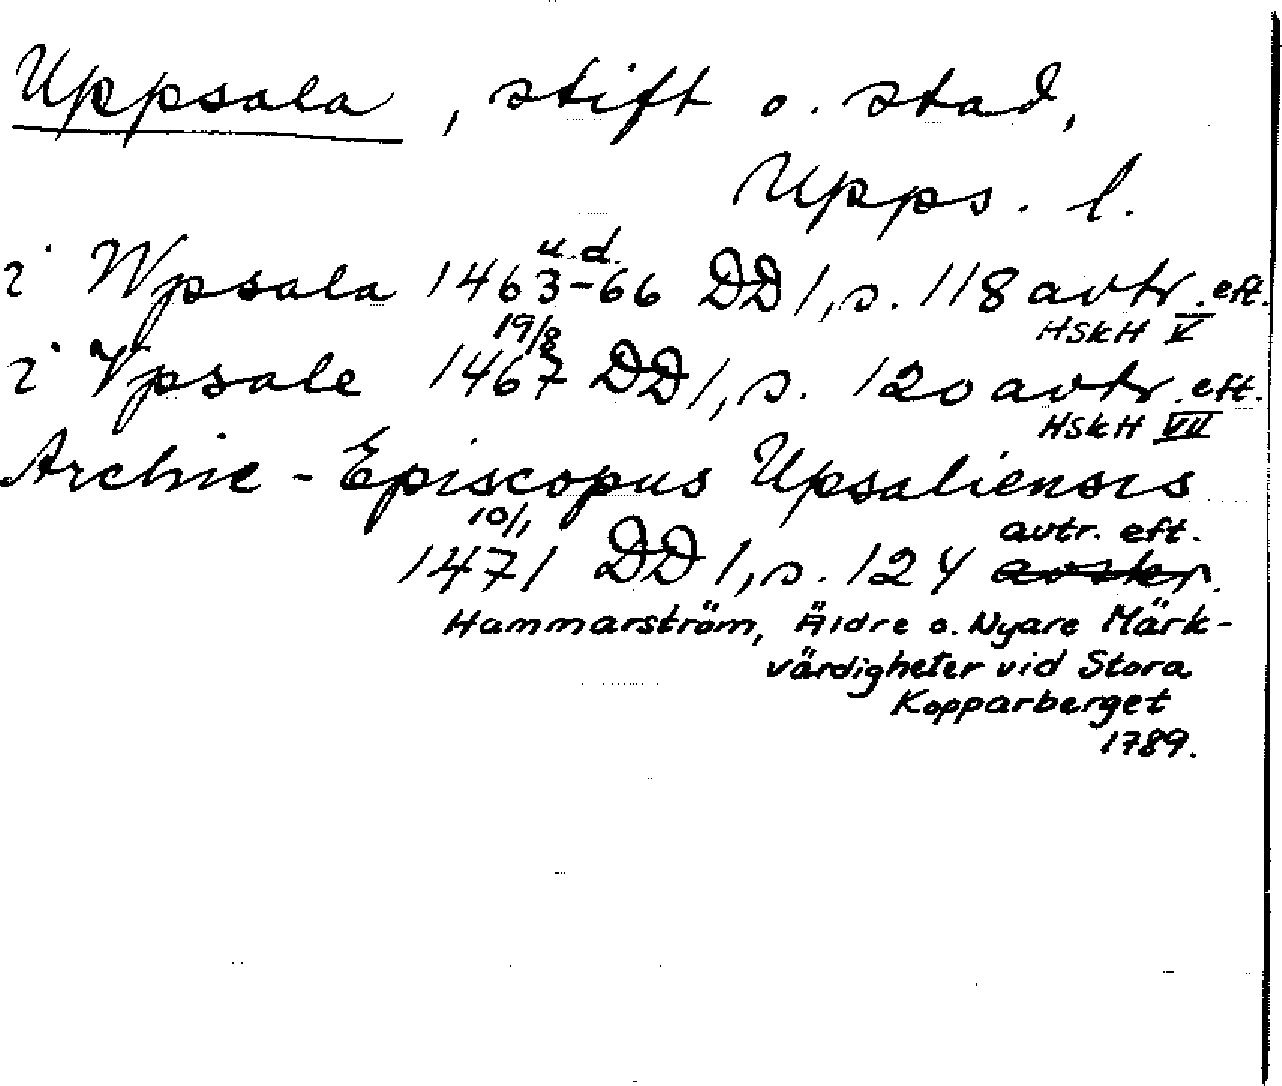 Uppsala, stift o. stad,
Upps. l.
u.d.
i Wpsala 1463-66 DD 1, s. 118 avtr. eft.
HSkH V
19/8
i Vpsale 1467 DD 1, s. 120 avtr. eft.
HSkH VII
Archie-Episcopus Upsaliensis
10/1 avtr. eft.
1471 DD 1, s. 124 avskr.
Hammarström, Äldre o. Nyare Märk-
värdigheter vid Stora
Kopparberget
1789.